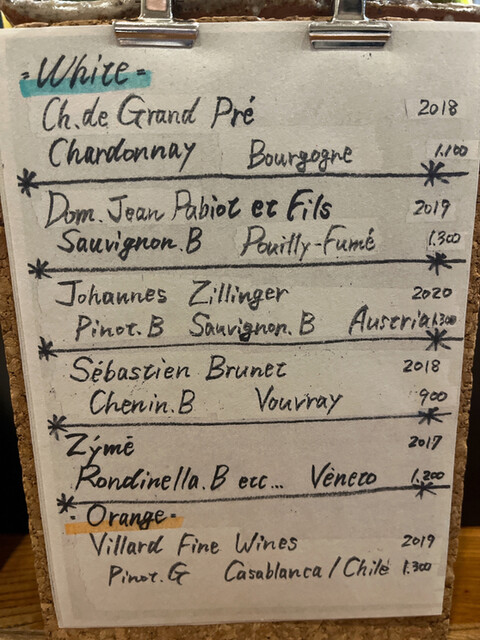 =White=
Ch. de Grand Pré 2018
Chardonnay Bourgogne 1.100
Dom. Jean Pabiot et Fils 2019
Sauvignon.B Pouilly-Fumé 1.300
Johannes Zillinger 2020
Pinot.B Sauvignon.B Austria 1.300
Sébastien Brunet 2018
Chenin.B Vouvray 900
Zýmē 2017
Rondinella.B etc... Véneto 1.200
-Orange-
Villard Fine Wines 2019
Pinot.G Casablanca/Chile 1.300